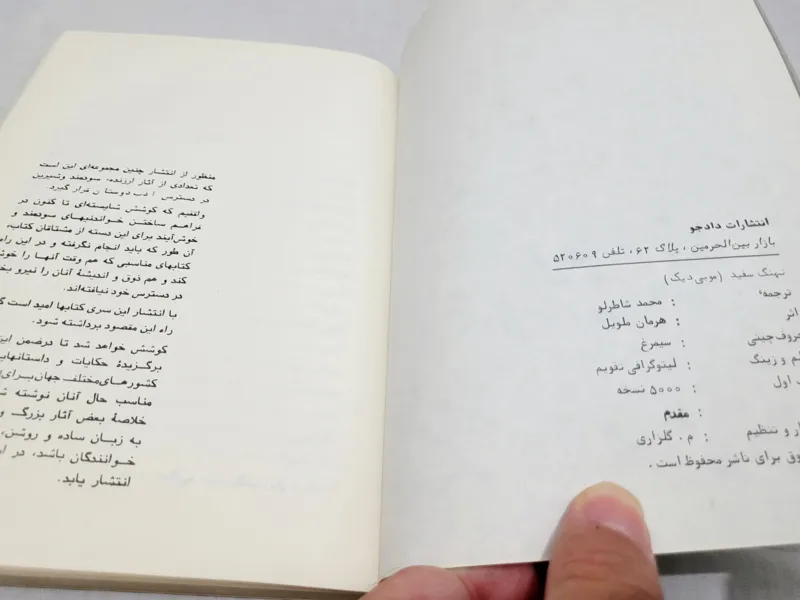 انتشارات دادجو
بازار بین‌الحرمین ، پلاک ۶۲ ، تلفن ۵۲۰۶۰۹
نهنگ سفید (موبی دیک)
ترجمهٔ : محمد شاطرلو
اثر : هرمان ملویل
حروف‌چینی : سیمرغ
و زینگ : لیتوگرافی تقویم
اول : ۵۰۰۰ نسخه
: مقدم
و تنظیم : م . گلزاری
برای ناشر محفوظ است .
منظور از انتشار چنین مجموعه‌ای این است
که تعدادی از آثار ارزنده، سودمند وشیرین
در دسترس ادب دوستان قرار گیرد.
واقفیم که کوشش شایسته‌ای تا کنون در
فراهم ساختن خواندنیهای سودمند و
خوش‌آیند برای این دسته از مشتاقان کتاب،
آن طور که باید انجام نگرفته و در این
کتابهای مناسبی که هم وقت آنها را
کند و هم ذوق و اندیشهٔ آنان را نیرو
در دسترس خود نیافته‌اند.
با انتشار این سری کتابها امید است
راه این مقصود برداشته شود.
کوشش خواهد شد تا درضمن این
برگزیدهٔ حکایات و داستانهای
کشورهای‌مختلف جهان‌برای
مناسب حال آنان نوشته
خلاصهٔ بعض آثار بزرگ و
به زبان ساده و روشن،
خوانندگان باشد، در
انتشار یابد.